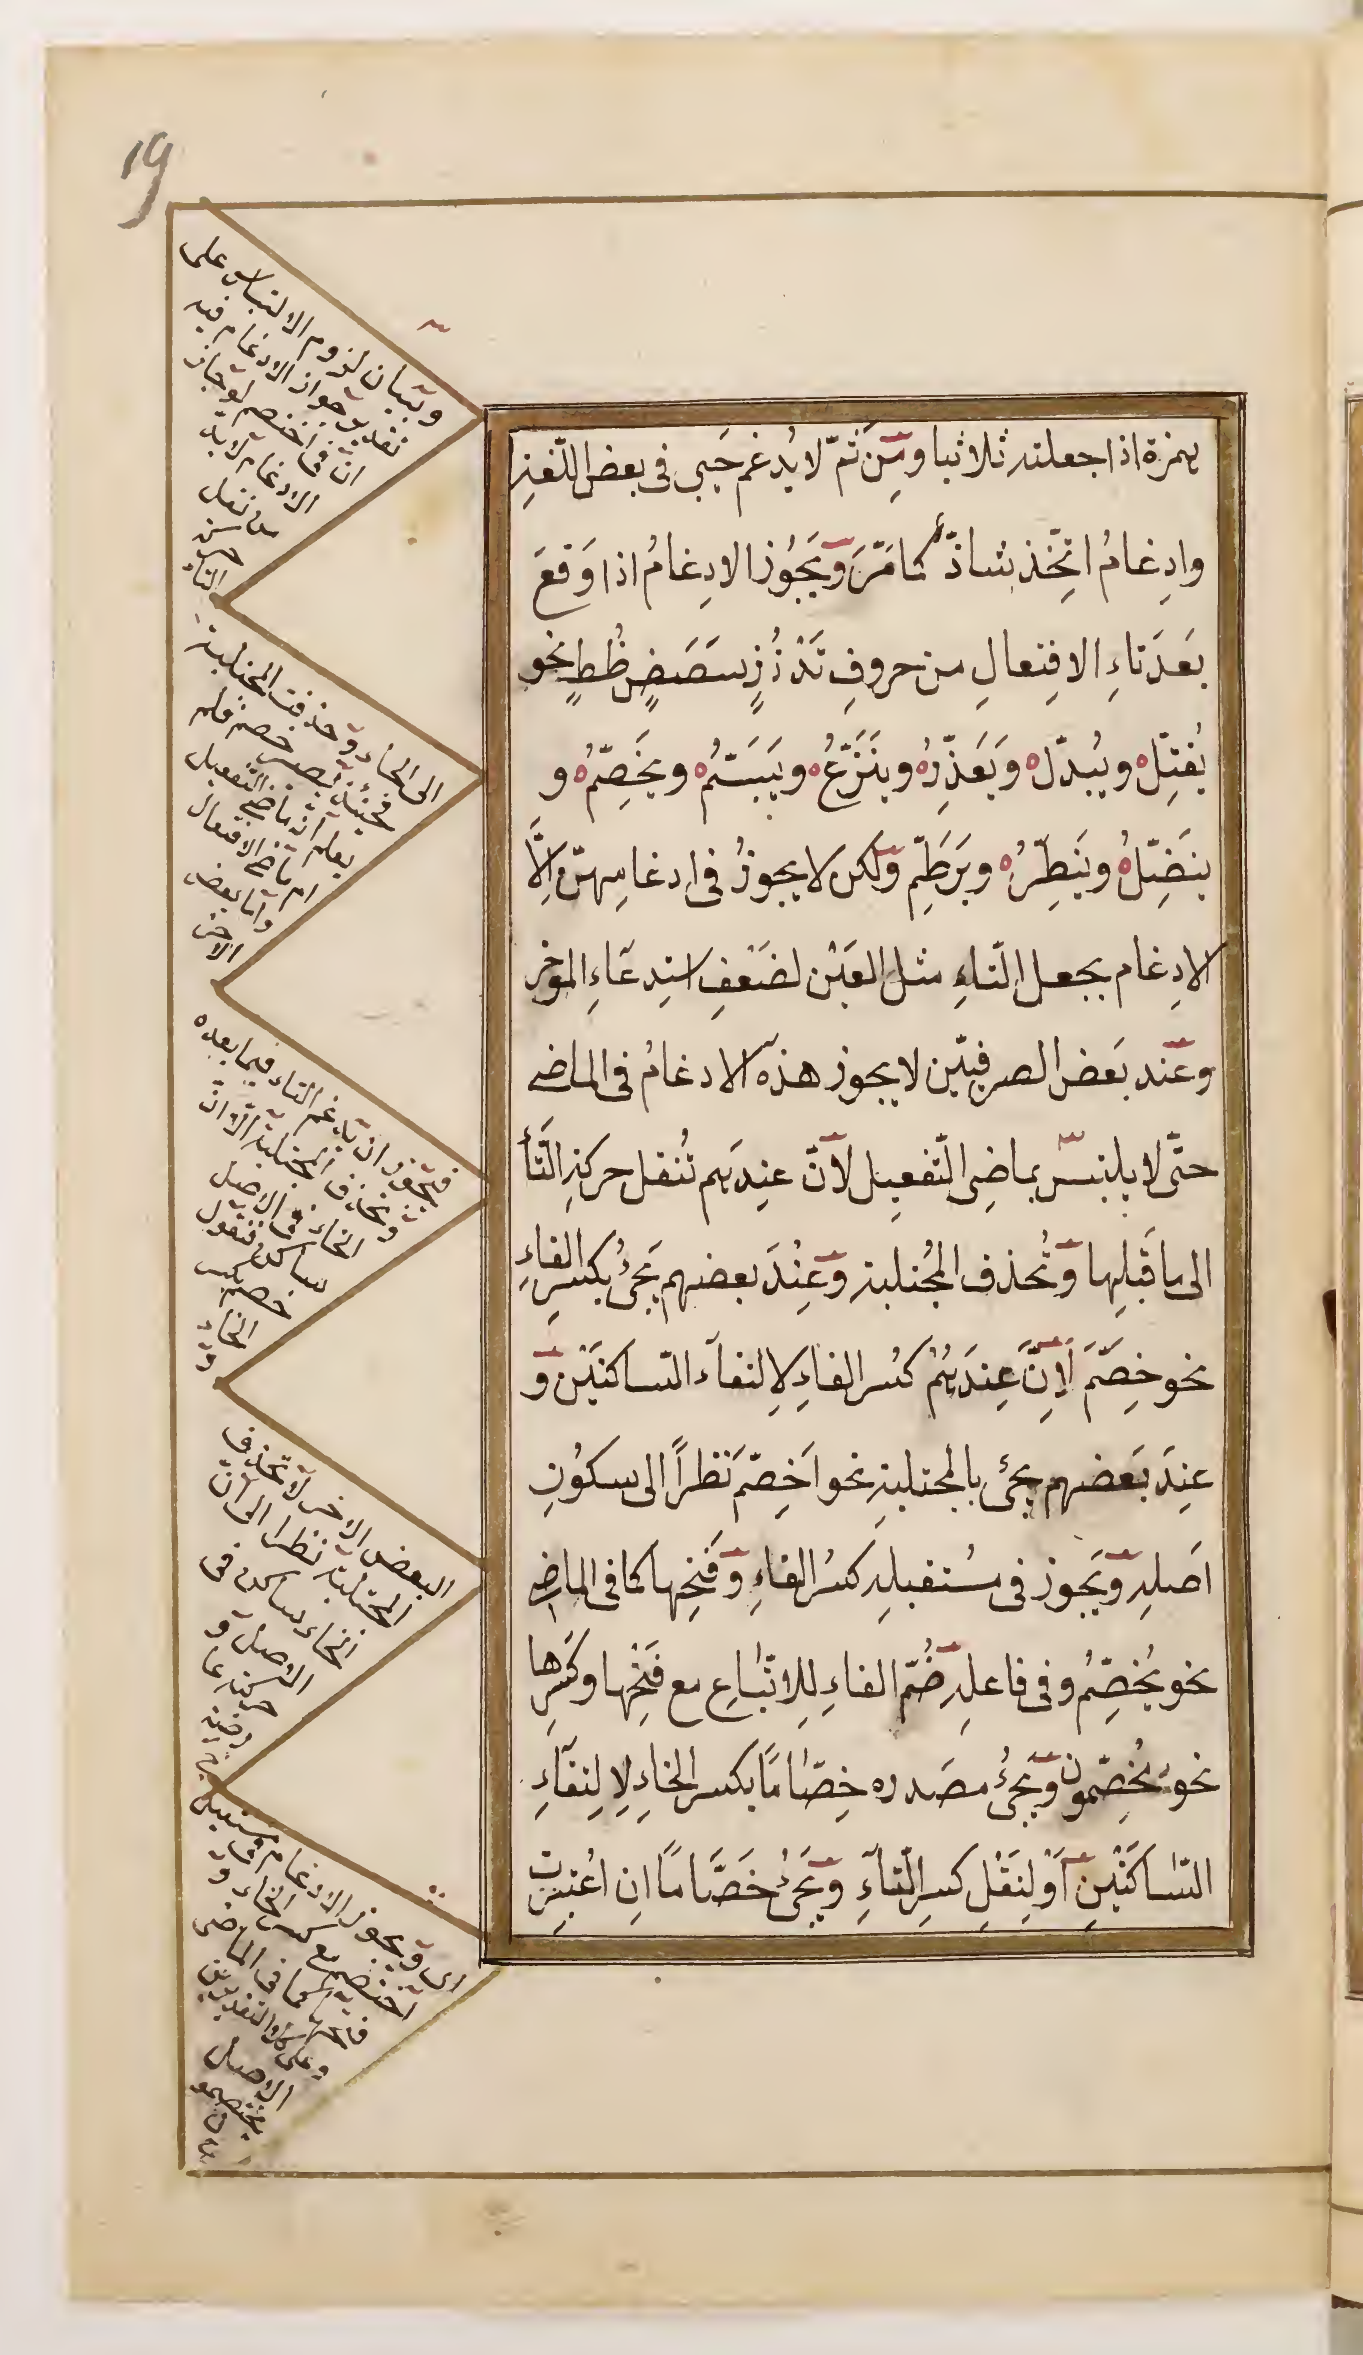 19
بهمزة اذا جعلته ثلاثيا ومِن ثَمّ لا يُدغم حَيِيَ فى بعض اللّغة
وادِغامُ اتّخذ شاذّ كما مَرَّ وَيَجُوز الادِغامُ اذا وَقعَ
بَعدَ تاءِ الافتِعالِ من حروفِ تَدْذُزٍسَصَضٍظُطٍ نحو
يُقتِّل و يُبدّل وَيَعَذِّرُ وينَزِّعُ ويَبَسّمُ ويَخَصِّمُ و
ينَضِّلُ ويَنَطِّرُ ويَرَطِّم وَلكن لا يجوزُ فى ادغامِهنّ اِلَّا
الادِغام بجعل التّاءِ مثل العَيْن لضَعْفِ استِدعَاءِ المؤخر
وعَند بَعض الصرفيّين لا يجوز هذه الادغامُ فى الماضى
حتّى لا يلتبسّ بماضِى التّفعِيل لاَنّ عِندَهم تُنقل حركة التّاء
الى ما قَبلِها وتُحذف المُجتلبة وَعِنْدَ بعضهم يَجىُٔ بكسرِ الفاءِ
نحو خِصَّمَ لَاِنَّ عِندَهُمْ كَسر الفاءِ لاِلتقآء السّاكنَيْن وَ
عِندَ بَعضهم يجئ بالمجتلبةِ نحو اَخِصّم نَظراً الى سكوُنِ
اَصلِه وَيَجوز فى مُستقبلِه كَسْرُ الفاءِ وَفَتحِها كما فى الماضِى
نحو يُخصِّمُ وفى فاعلِه ضُمّ الفاءِ لِلاتّباعِ مع فَتحِها وكَسرِها
نحو مُخِصّمون وَيَجئُ مصَدره خِصّامًا بكسر الخاءِ لِالتِقآءِ
السّاكنَيْنِ اَوْ لِنَقْلِ كسرِ التآءِ وَيَجئُ خَصَّامًا انِ اعْتبِرت
وبيان لزوم الالتباس على
تقدير جواز الادغام فيه
انّ فى اختصم لو جاز
الادغام لابدّ
من نقل
حركة
التاء
الى الخاء وحذفت المجتلبة
فحينئذ يصير خصّم فلم
يعلم انّه ماضى التّفعيل
ام ماضى الافتعال
وامّا بعض
الاخر
فيجوز ان يدغم التاء فيما بعده
ويحذف المجتلبة الّا انّ
الخاء فى الاصل
ساكن فنقول
خصم بكسر
الخاء
و
البعض الاخر لا تحذف
المجتلبة نظرا الى انّ
الخاء ساكن فى
الاصل و
حركته عا
رضية
اى ويجوز الادغام فى مستقبل
اختصم مع كسر الخاء و
فتحها كما فى الماضى
وعلى كلا التقديرين
الاصل
يختصمو
ن